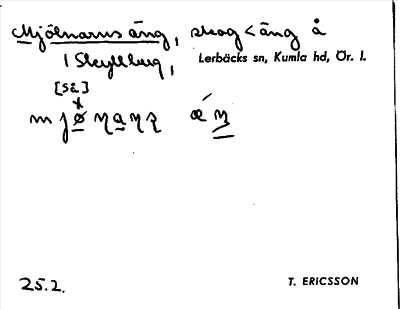 Mjölnarns äng, skog < äng å
1 Skyllberg, Lerbäcks sn, Kumla hd, Ör. l.
[sɩ]
25.2. T. ERICSSON